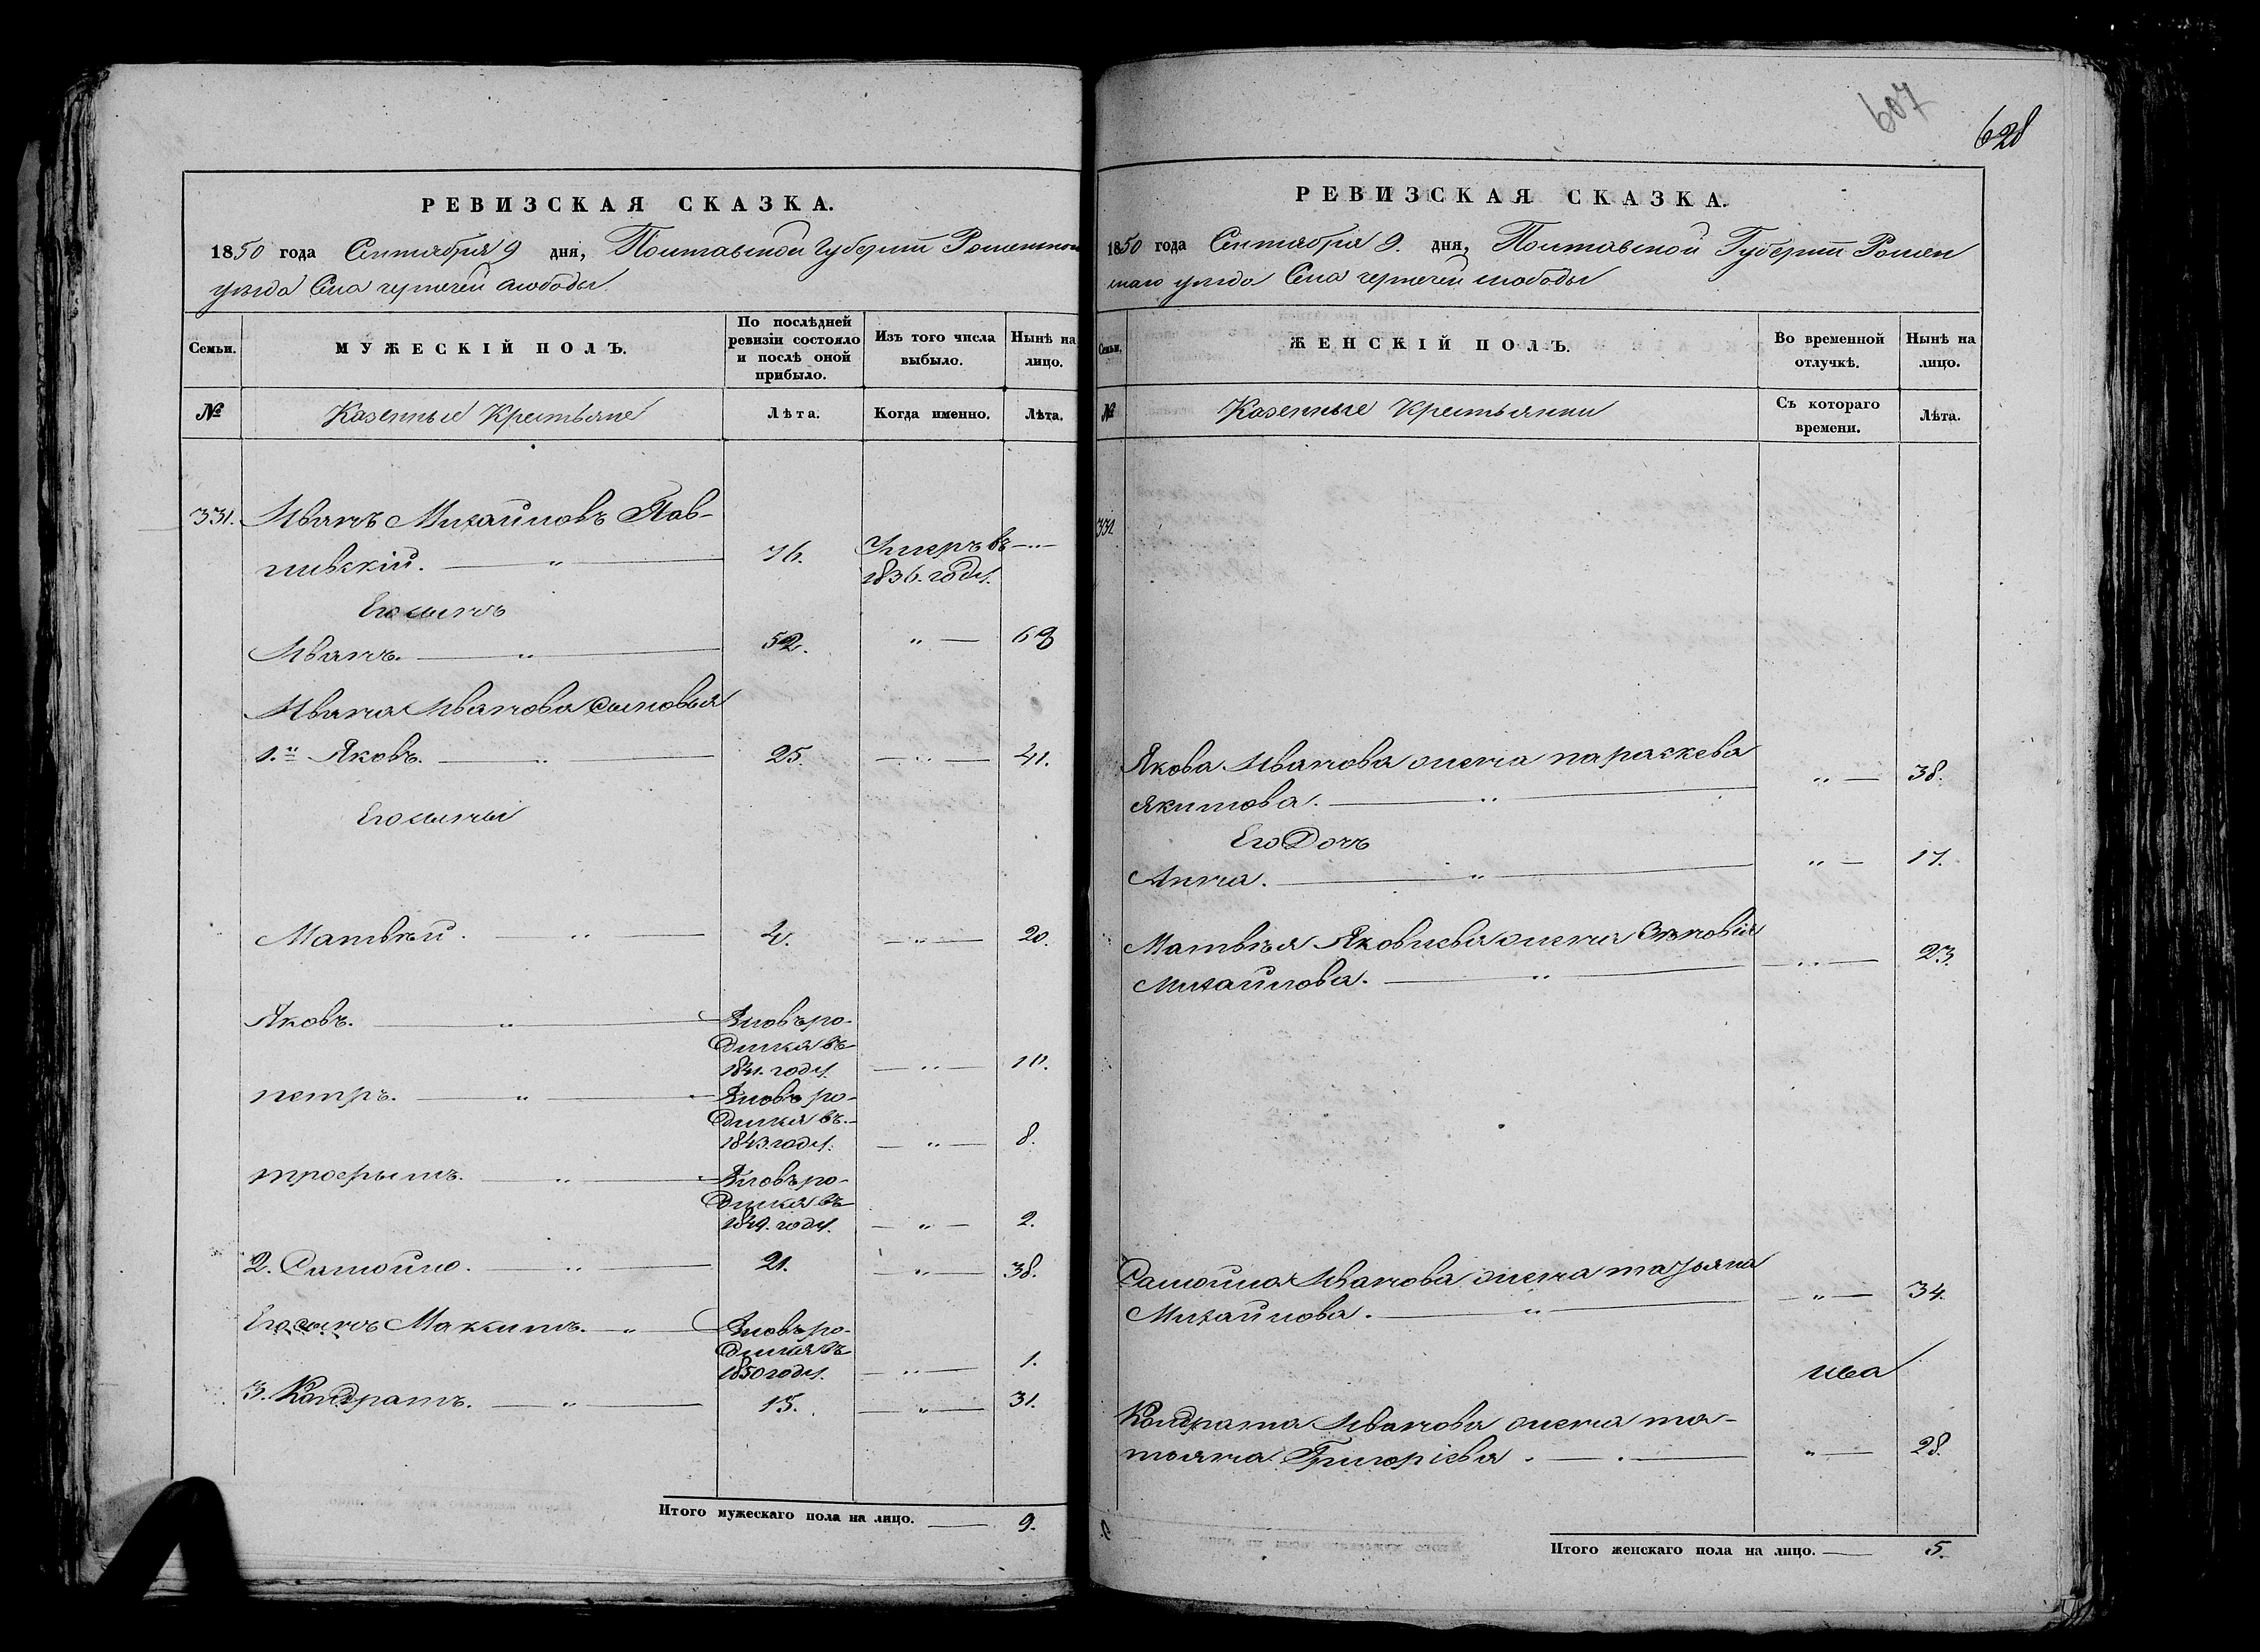 607
628
РЕВИЗСКАЯ СКАЗКА.
1850 года Сентября 9 дня, Полтавской Губернiи Роменскаго
уѣзда Села чернечей слободы
Семьи.
МУЖЕСКІЙ ПОЛЪ.
По послѣдней
ревизіи состояло
и послѣ оной
прибыло.
Изъ того числа
выбыло.
Нынѣ на
лицо.
№
Казенные Крестьяне
Лѣта.
Когда именно.
Лѣта.
331. Иванъ Михайловъ Пав-
ливскій. — „ — 76. Умеръ въ — „ —
1836. году.
Его сынъ
Иванъ. — „ — 52. „ — 68
Ивана Иванова сыновья
1.й Яковъ. — „ — 25. — „ — 41.
Его сыны
Матвѣй. — „ — 4. — „ — 20.
Яковъ. — „ — Вновь ро-
дился въ
1841. году. — „ — 10.
петръ. — „ — Вновь ро-
дился въ
1843 году. — „ — 8.
трофымъ. — „ — Вновь ро-
дился въ
1849. году. — „ — 2.
2. Самойло. — „ — 21. — „ — 38.
Его сынъ Максимъ. — „ — Вновь ро-
дился въ
1850 году. — „ — 1.
3. Кондратъ. — „ — 15. — „ — 31.
Итого мужескаго пола на лицо. — 9.
РЕВИЗСКАЯ СКАЗКА.
1850 года Сентября 9. дня, Полтавской Губернiи Ромен
скаго уѣзда Села чернечей слободы
Семьи.
ЖЕНСКІЙ ПОЛЪ.
Во временной
отлучкѣ.
Нынѣ на
лицо.
№
Казенные Крестьянки
Съ котораго
времени.
Лѣта.
331.
Якова Иванова жена параскева
Якимова. — „ — „ — 38.
Его Дочь
Анна. — „ — „ — 17.
Матвѣя Яковлева жена Зѣновія
Михайлова. — „ — — „ — 23.
Самойла Иванова жена татьяна
Михайлова. — „ — — „ — 34.
Кондрата Иванова жена та-
тьяна Григоріева. — . — „ — 28.
Итого женскаго пола на лицо. — 5.